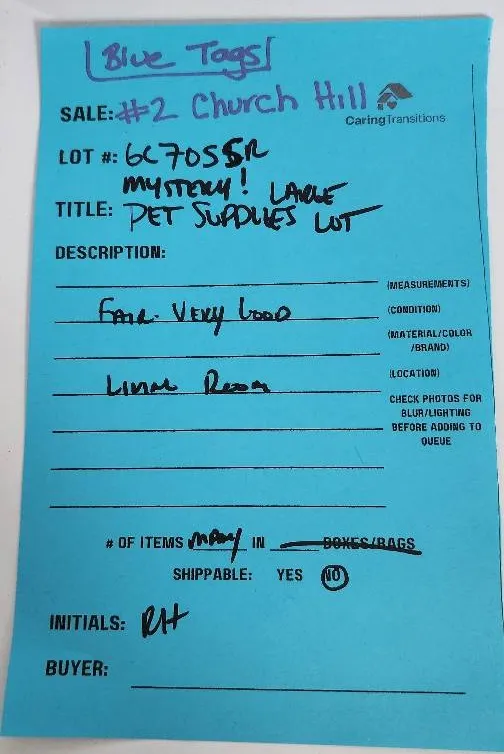 Blue Tags
SALE: #2 Church Hill
CaringTransitions
LOT #: 6C705SR
MYSTERY! LARGE
TITLE: PET SUPPLIES LOT
DESCRIPTION:
(MEASUREMENTS)
FAIR- VERY GOOD (CONDITION)
(MATERIAL/COLOR
/BRAND)
LIVING ROOM (LOCATION)
CHECK PHOTOS FOR
BLUR/LIGHTING
BEFORE ADDING TO
QUEUE
# OF ITEMS MANY IN BOXES/BAGS
SHIPPABLE: YES NO
INITIALS: RH
BUYER: